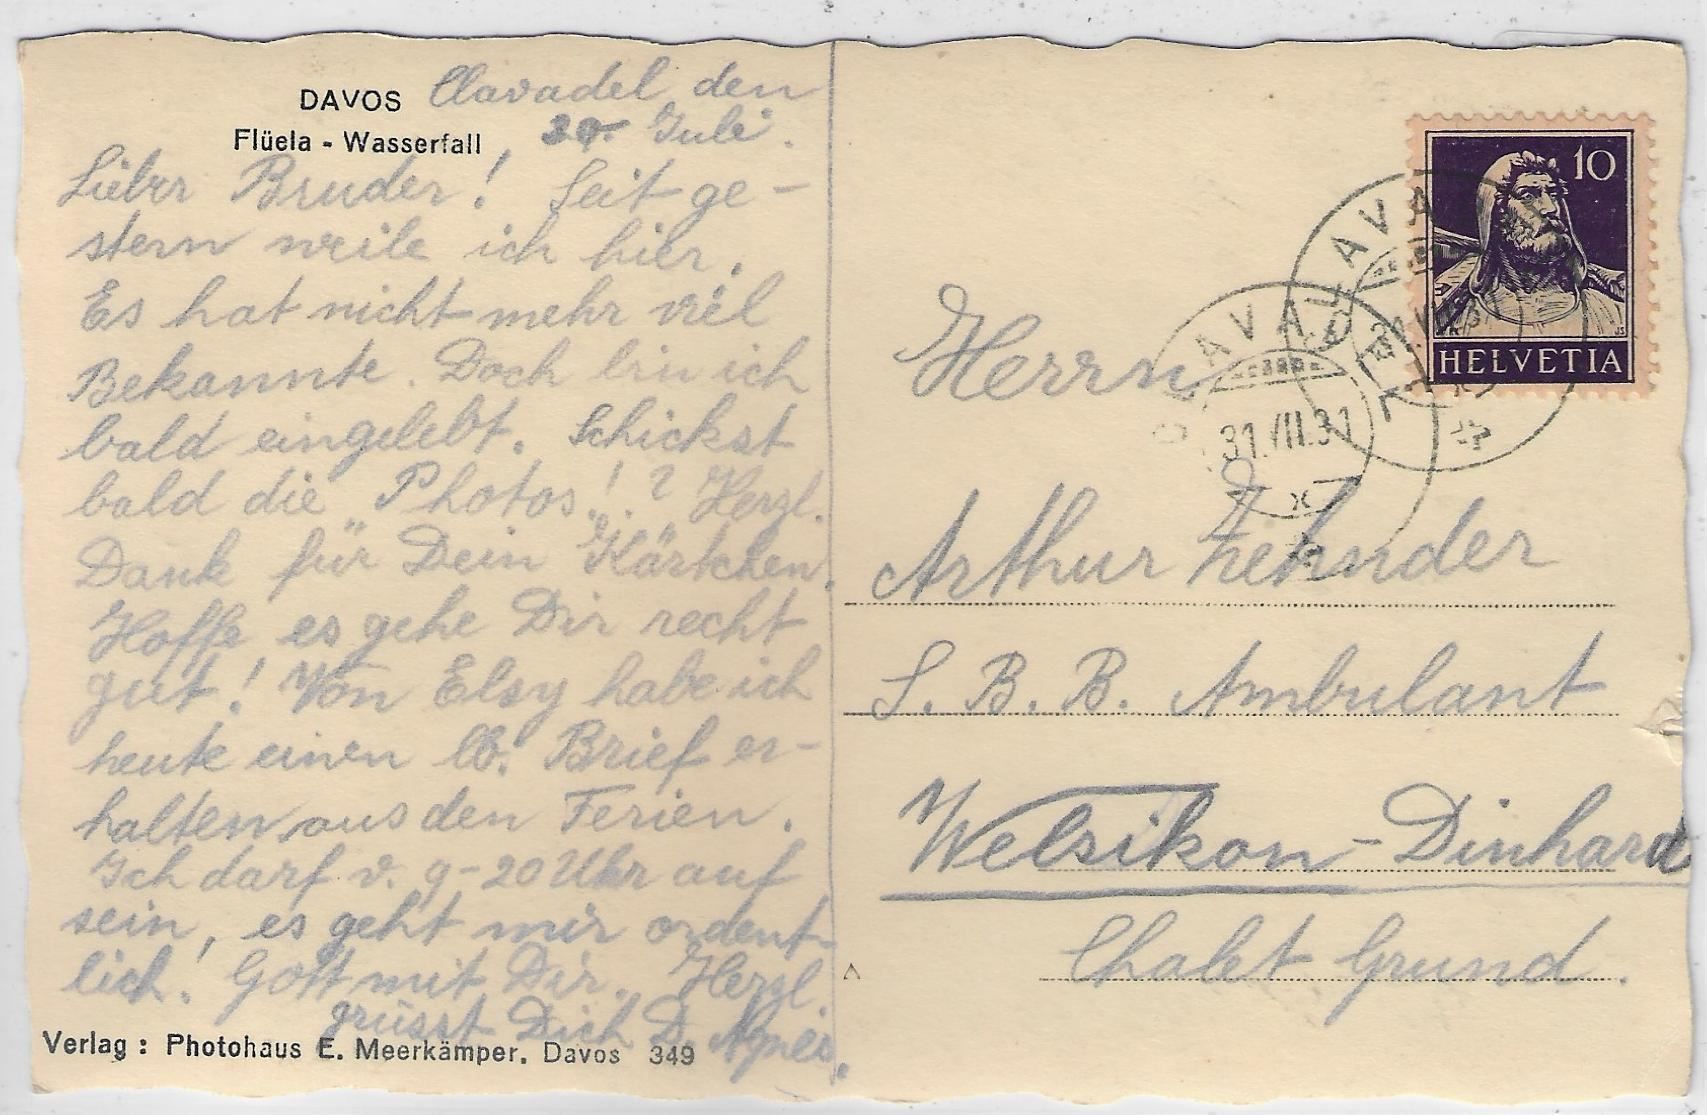 DAVOS
Flüela - Wasserfall
Clavadel den
Juli.
Lieber Bruder! Seit ge-
stern weile ich hier.
Es hat nicht mehr viel
Bekannte. Doch bin ich
bald eingelebt. Schickst
bald die Photos!? Herzl.
Dank für Dein Kärtchen.
Hoffe es gehe Dir recht
gut! Von Elsy habe ich
heute einen lb. Brief er-
halten aus den Ferien.
Ich darf v. 9-20 Uhr auf
sein, es geht mir ordent-
lich! Gott mit Dir. Herzl.
grüsst Dich D. Agnes.
Verlag: Photohaus E. Meerkämper, Davos 349
10
HELVETIA
CLAVADEL
31.VII.31
CLAVADEL
31.VII.31
Herrn
Arthur Zehnder
S.B.B. Ambulant
Welsikon-Dinhard
Chalet Grund.